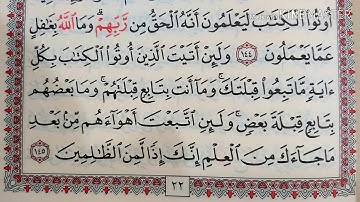 أُوتُوا۟ ٱلْكِتَٰبَ لَيَعْلَمُونَ أَنَّهُ ٱلْحَقُّ مِن رَّبِّهِمْ ۗ وَمَا ٱللَّهُ بِغَٰفِلٍ
عَمَّا يَعْمَلُونَ ١٤٤ وَلَئِنْ أَتَيْتَ ٱلَّذِينَ أُوتُوا۟ ٱلْكِتَٰبَ بِكُلِّ
ءَايَةٍ مَّا تَبِعُوا۟ قِبْلَتَكَ ۚ وَمَآ أَنتَ بِتَابِعٍ قِبْلَتَهُمْ ۚ وَمَا بَعْضُهُم
بِتَابِعٍ قِبْلَةَ بَعْضٍ ۚ وَلَئِنِ ٱتَّبَعْتَ أَهْوَآءَهُم مِّنۢ بَعْدِ
مَا جَآءَكَ مِنَ ٱلْعِلْمِ إِنَّكَ إِذًا لَّمِنَ ٱلظَّٰلِمِينَ ١٤٥
٢٢